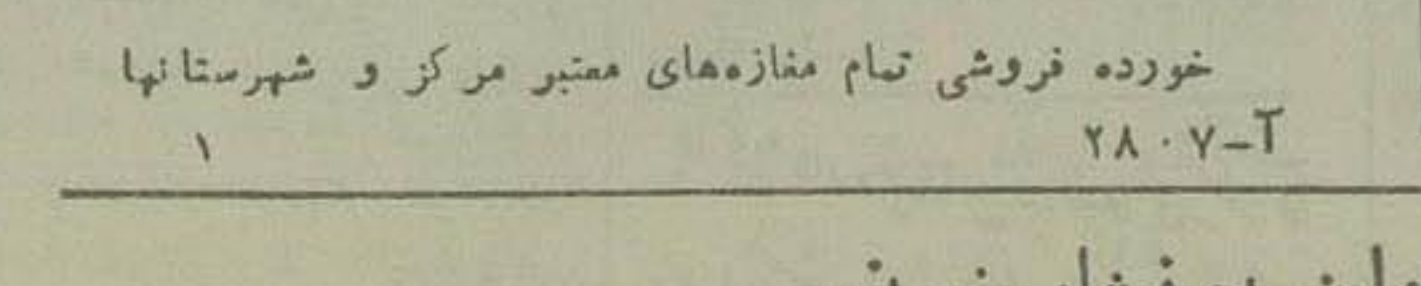 خورده فروشی تمام مغازه‌های معتبر مرکز و شهرستانها
آ-۲۸۰۷ ۱